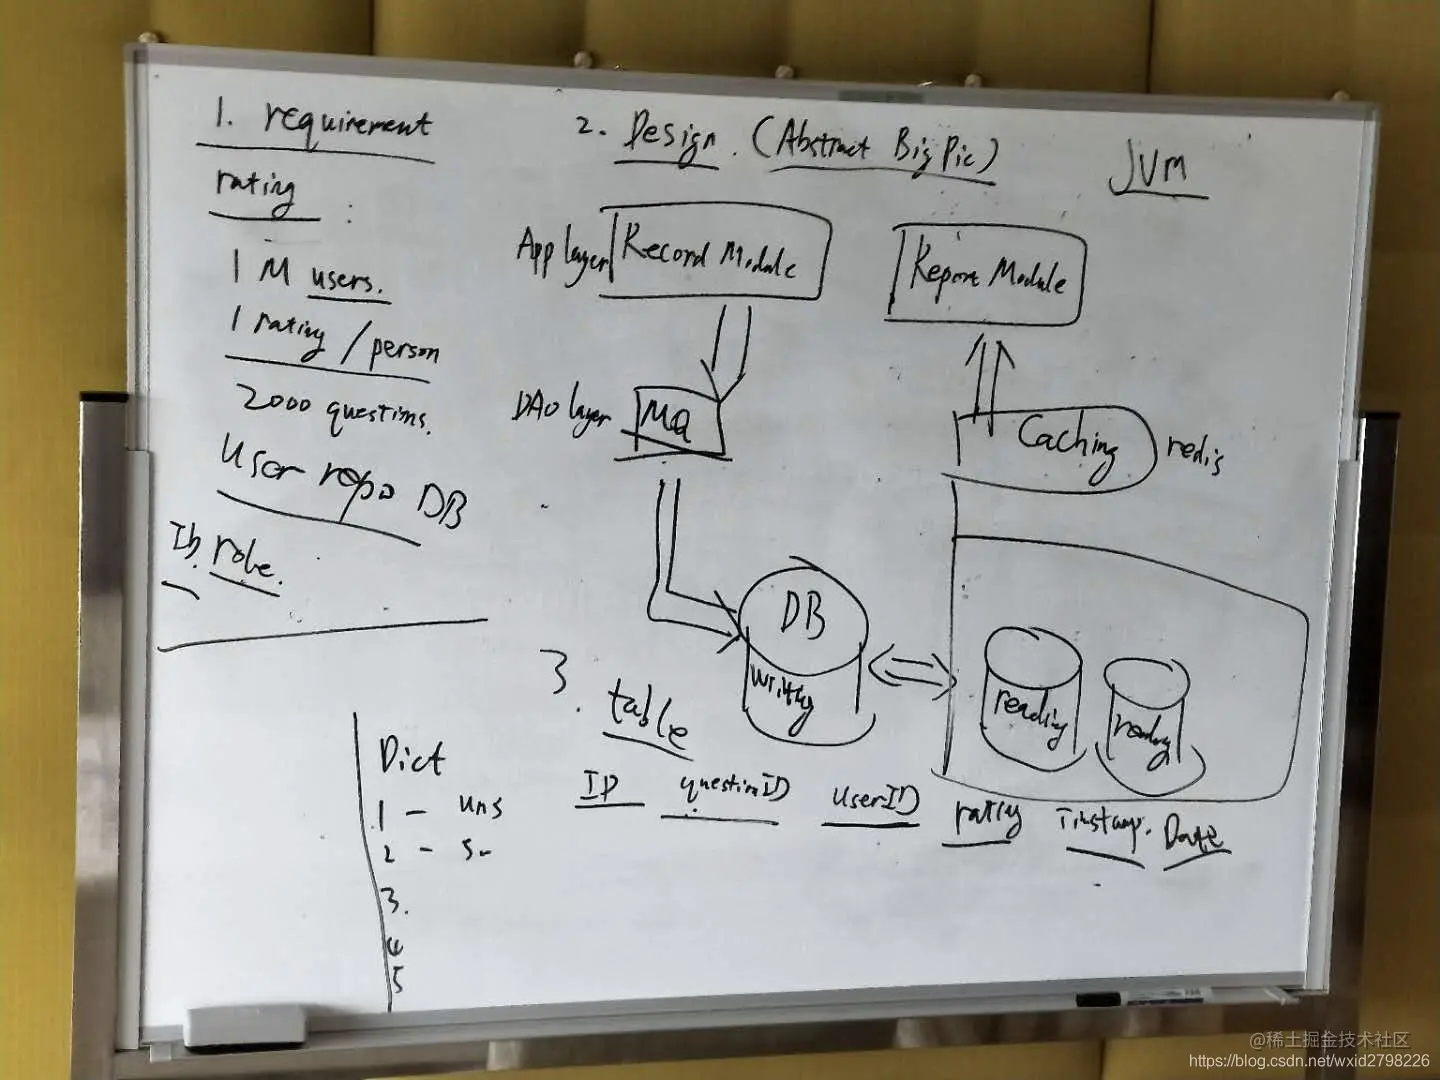 1. requirement
rating :
1 M users.
1 rating / person
2000 questions.
User repo DB
ID. role.
2. Design. (Abstract Big Pic)
JVM
App layer
Record Module
Report Module
DAO layer
MQ
Caching
redis
DB
writing
reading
reading
3. table
ID questionID userID rating Timstamp. Date
Dict
1 - uns
2 -
3.
4
5
@稀土掘金技术社区
https://blog.csdn.net/wxid2798226